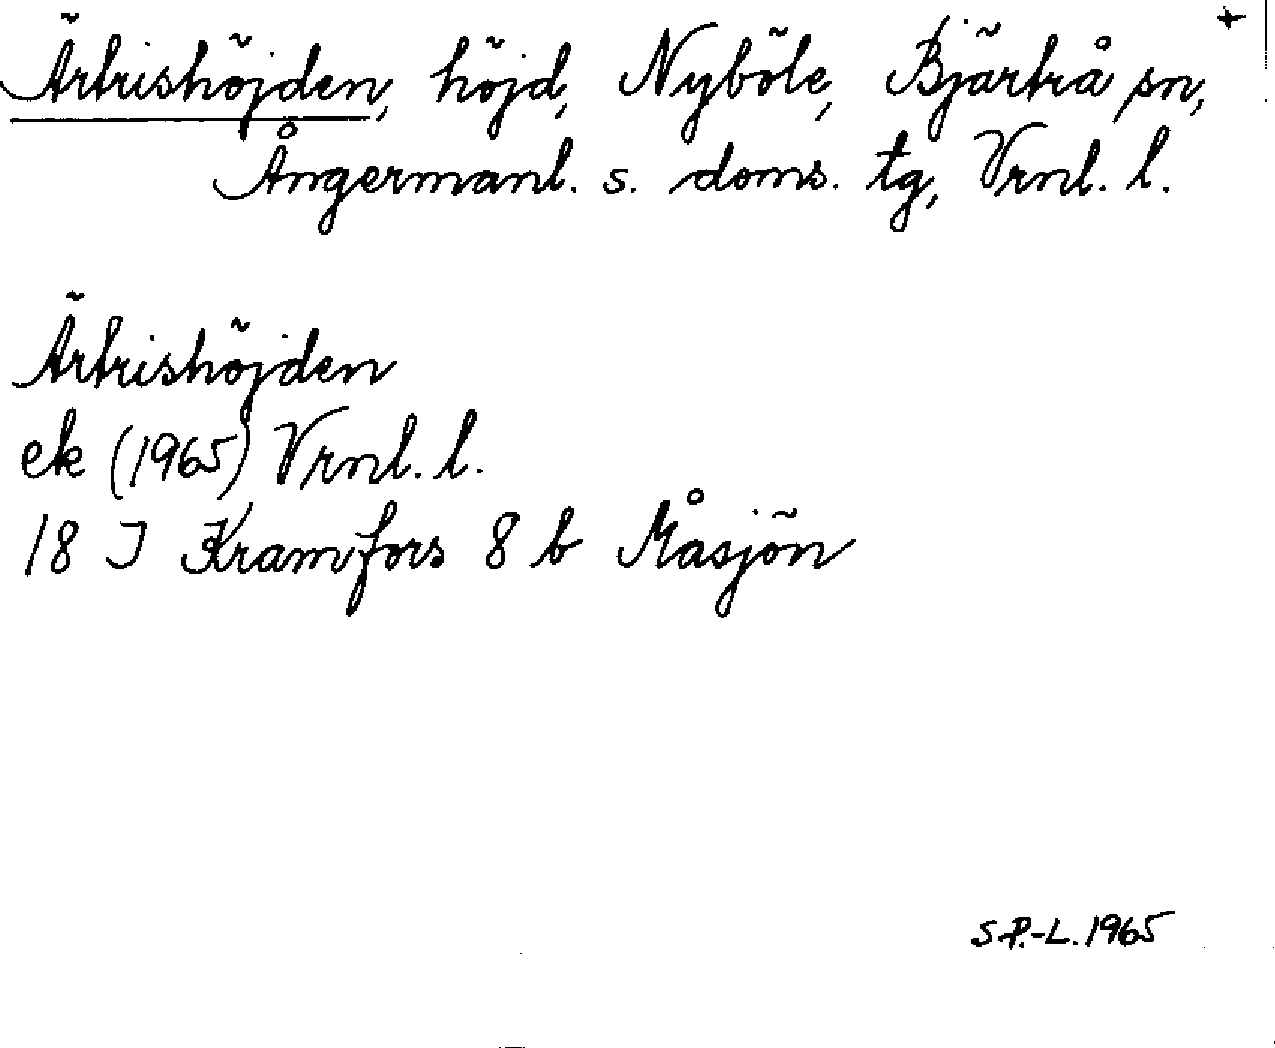 Ärtrishöjden, höjd, Nyböle, Bjärtrå sn,
Ångermanl. s. doms. tg, Vrnl. l.
Ärtrishöjden
ek (1965) Vrnl. l.
18 I Kramfors 8 b Måsjön
S.P.-L. 1965